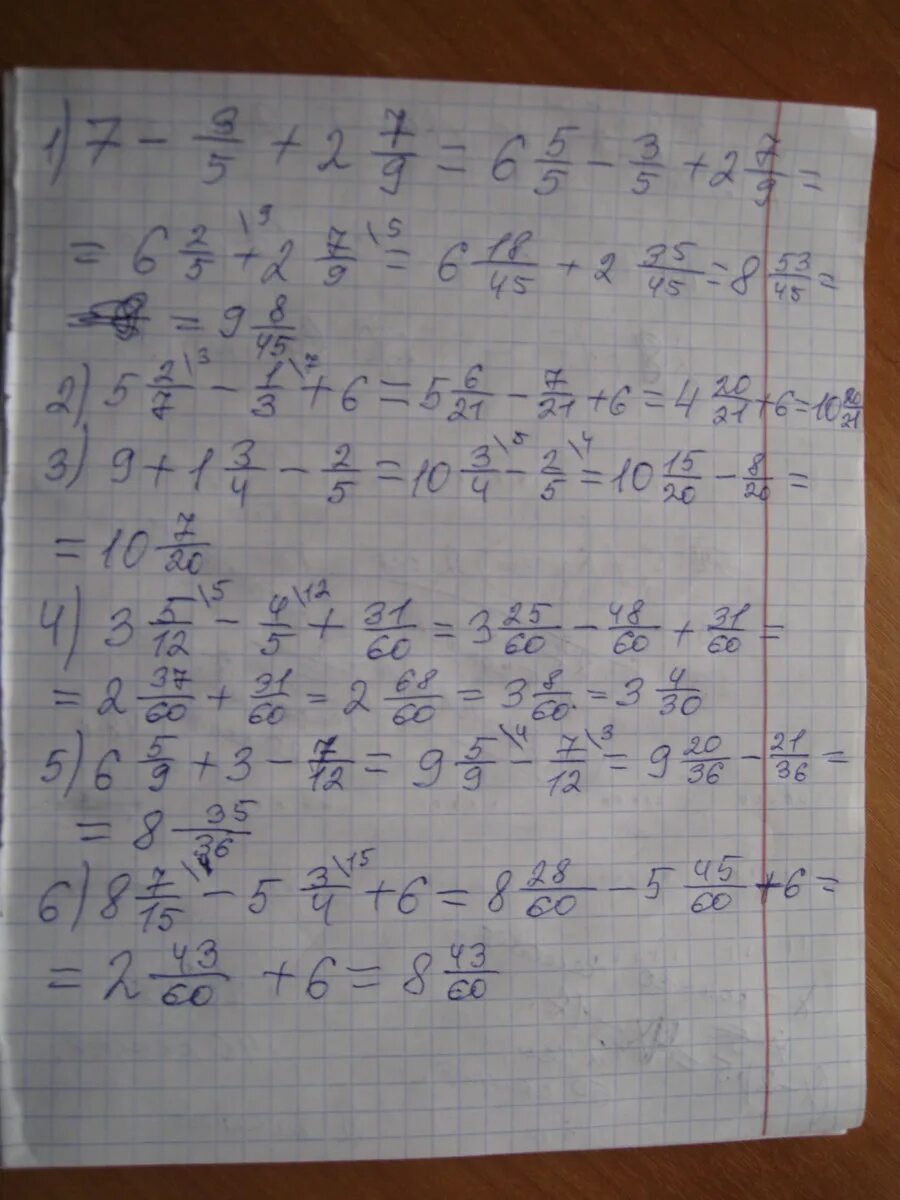 1) 7 - 3/5 + 2 7/9 = 6 5/5 - 3/5 + 2 7/9 =
= 6 2/5 \9 + 2 7/9 \5 = 6 18/45 + 2 35/45 = 8 53/45 =
= 9 8/45
2) 5 2/7 \3 - 1/3 \7 + 6 = 5 6/21 - 7/21 + 6 = 4 20/21 + 6 = 10 20/21
3) 9 + 1 3/4 - 2/5 = 10 3/4 \5 - 2/5 \4 = 10 15/20 - 8/20 =
= 10 7/20
4) 3 5/12 \5 - 4/5 \12 + 31/60 = 3 25/60 - 48/60 + 31/60 =
= 2 37/60 + 31/60 = 2 68/60 = 3 8/60 = 3 4/30
5) 6 5/9 + 3 - 7/12 = 9 5/9 \4 - 7/12 \3 = 9 20/36 - 21/36 =
= 8 35/36
6) 8 7/15 - 5 3/4 \15 + 6 = 8 28/60 - 5 45/60 + 6 =
= 2 43/60 + 6 = 8 43/60